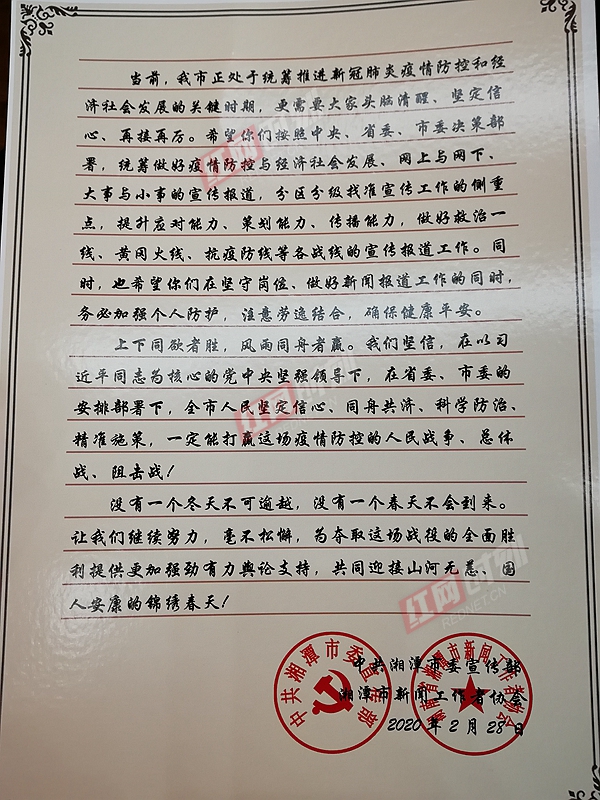 当前，我市正处于统筹推进新冠肺炎疫情防控和经
济社会发展的关键时期，更需要大家头脑清醒、坚定信
心、再接再厉。希望你们按照中央、省委、市委决策部
署，统筹做好疫情防控与经济社会发展、网上与网下、
大事与小事的宣传报道，分区分级找准宣传工作的侧重
点，提升应对能力、策划能力、传播能力，做好救治一
线、黄冈火线、抗疫防线等各战线的宣传报道工作。同
时，也希望你们在坚守岗位、做好新闻报道工作的同时，
务必加强个人防护，注意劳逸结合，确保健康平安。
上下同欲者胜，风雨同舟者赢。我们坚信，在以习
近平同志为核心的党中央坚强领导下，在省委、市委的
安排部署下，全市人民坚定信心、同舟共济、科学防治、
精准施策，一定能打赢这场疫情防控的人民战争、总体
战、阻击战！
没有一个冬天不可逾越，没有一个春天不会到来。
让我们继续努力，毫不松懈，为夺取这场战役的全面胜
利提供更加强劲有力舆论支持，共同迎接山河无恙、国
人安康的锦绣春天！
中共湘潭市委宣传部
湘潭市新闻工作者协会
2020年2月28日
中共湘潭市委宣传部
湖南省湘潭市新闻工作者协会
红网时刻
REDNET.CN